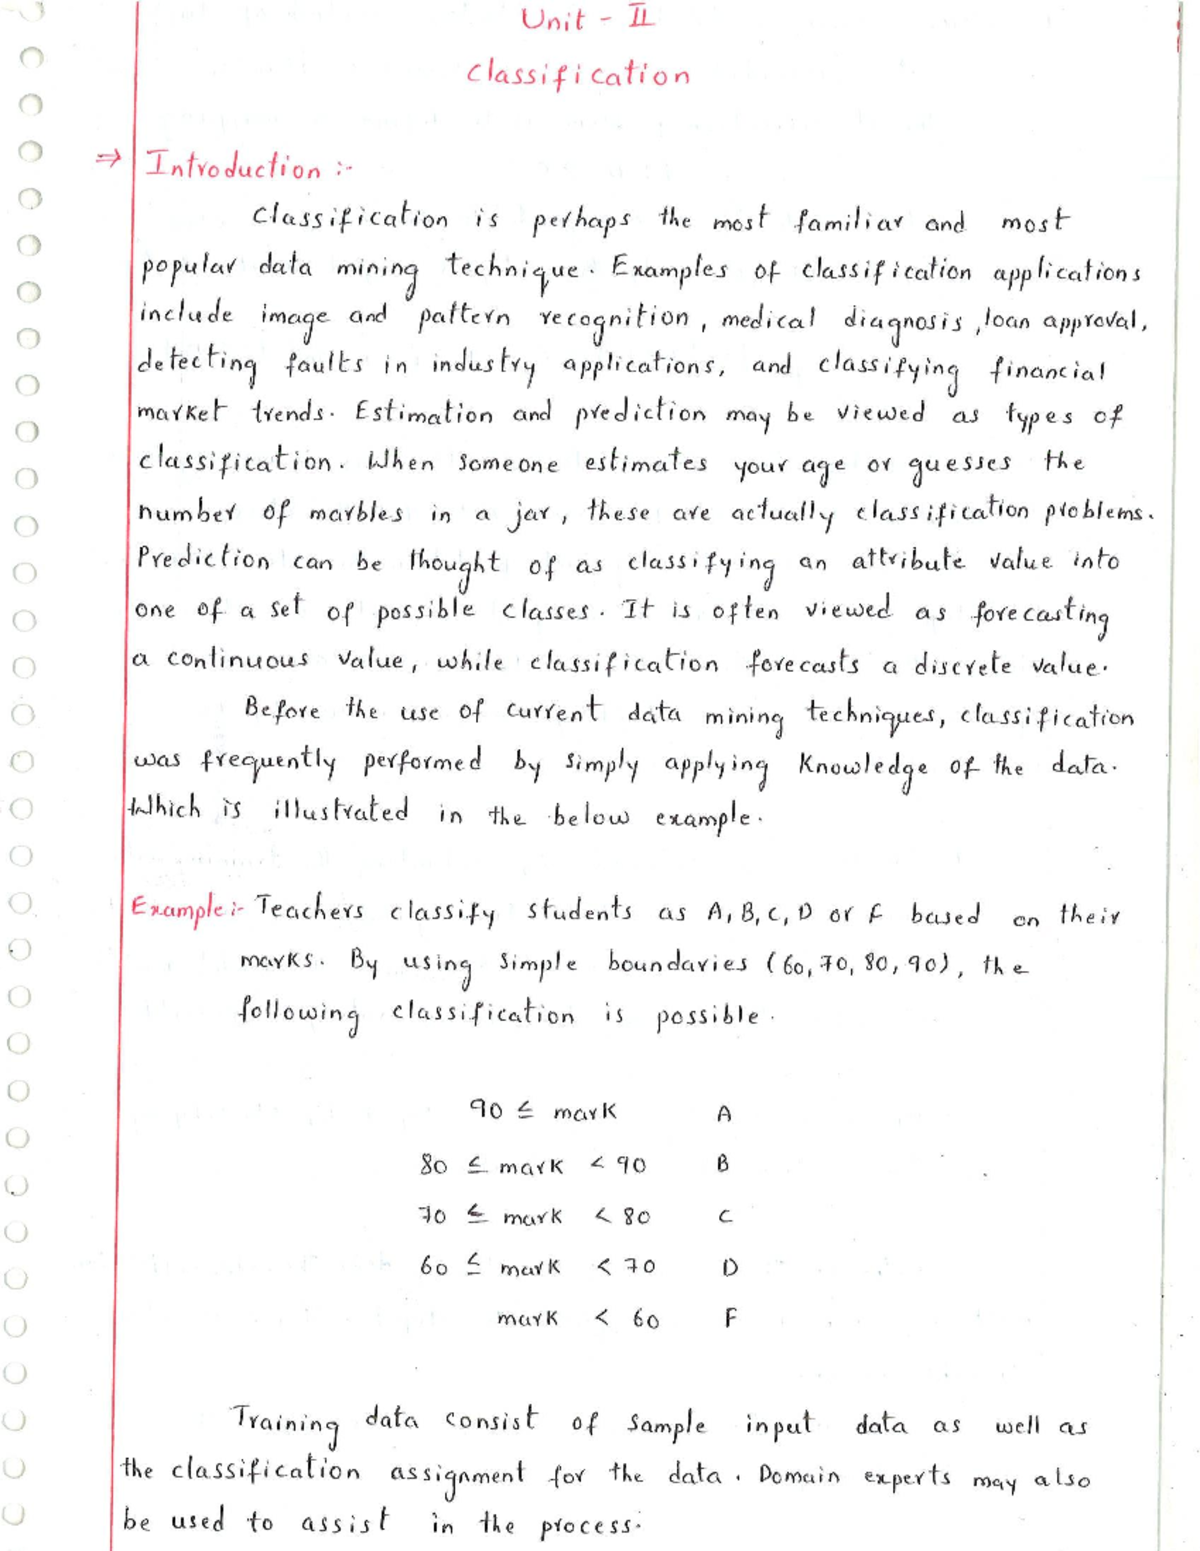 Unit - II
Classification
⇒ Introduction :-
Classification is perhaps the most familiar and most
popular data mining technique. Examples of classification applications
include image and pattern recognition, medical diagnosis, loan approval,
detecting faults in industry applications, and classifying financial
market trends. Estimation and prediction may be viewed as types of
classification. When someone estimates your age or guesses the
number of marbles in a jar, these are actually classification problems.
Prediction can be thought of as classifying an attribute value into
one of a set of possible classes. It is often viewed as forecasting
a continuous value, while classification forecasts a discrete value.
Before the use of current data mining techniques, classification
was frequently performed by simply applying knowledge of the data.
Which is illustrated in the below example.
Example:- Teachers classify students as A, B, C, D or F based on their
marks. By using simple boundaries (60, 70, 80, 90), the
following classification is possible.
90 ≤ mark A
80 ≤ mark < 90 B
70 ≤ mark < 80 C
60 ≤ mark < 70 D
mark < 60 F
Training data consist of sample input data as well as
the classification assignment for the data. Domain experts may also
be used to assist in the process.